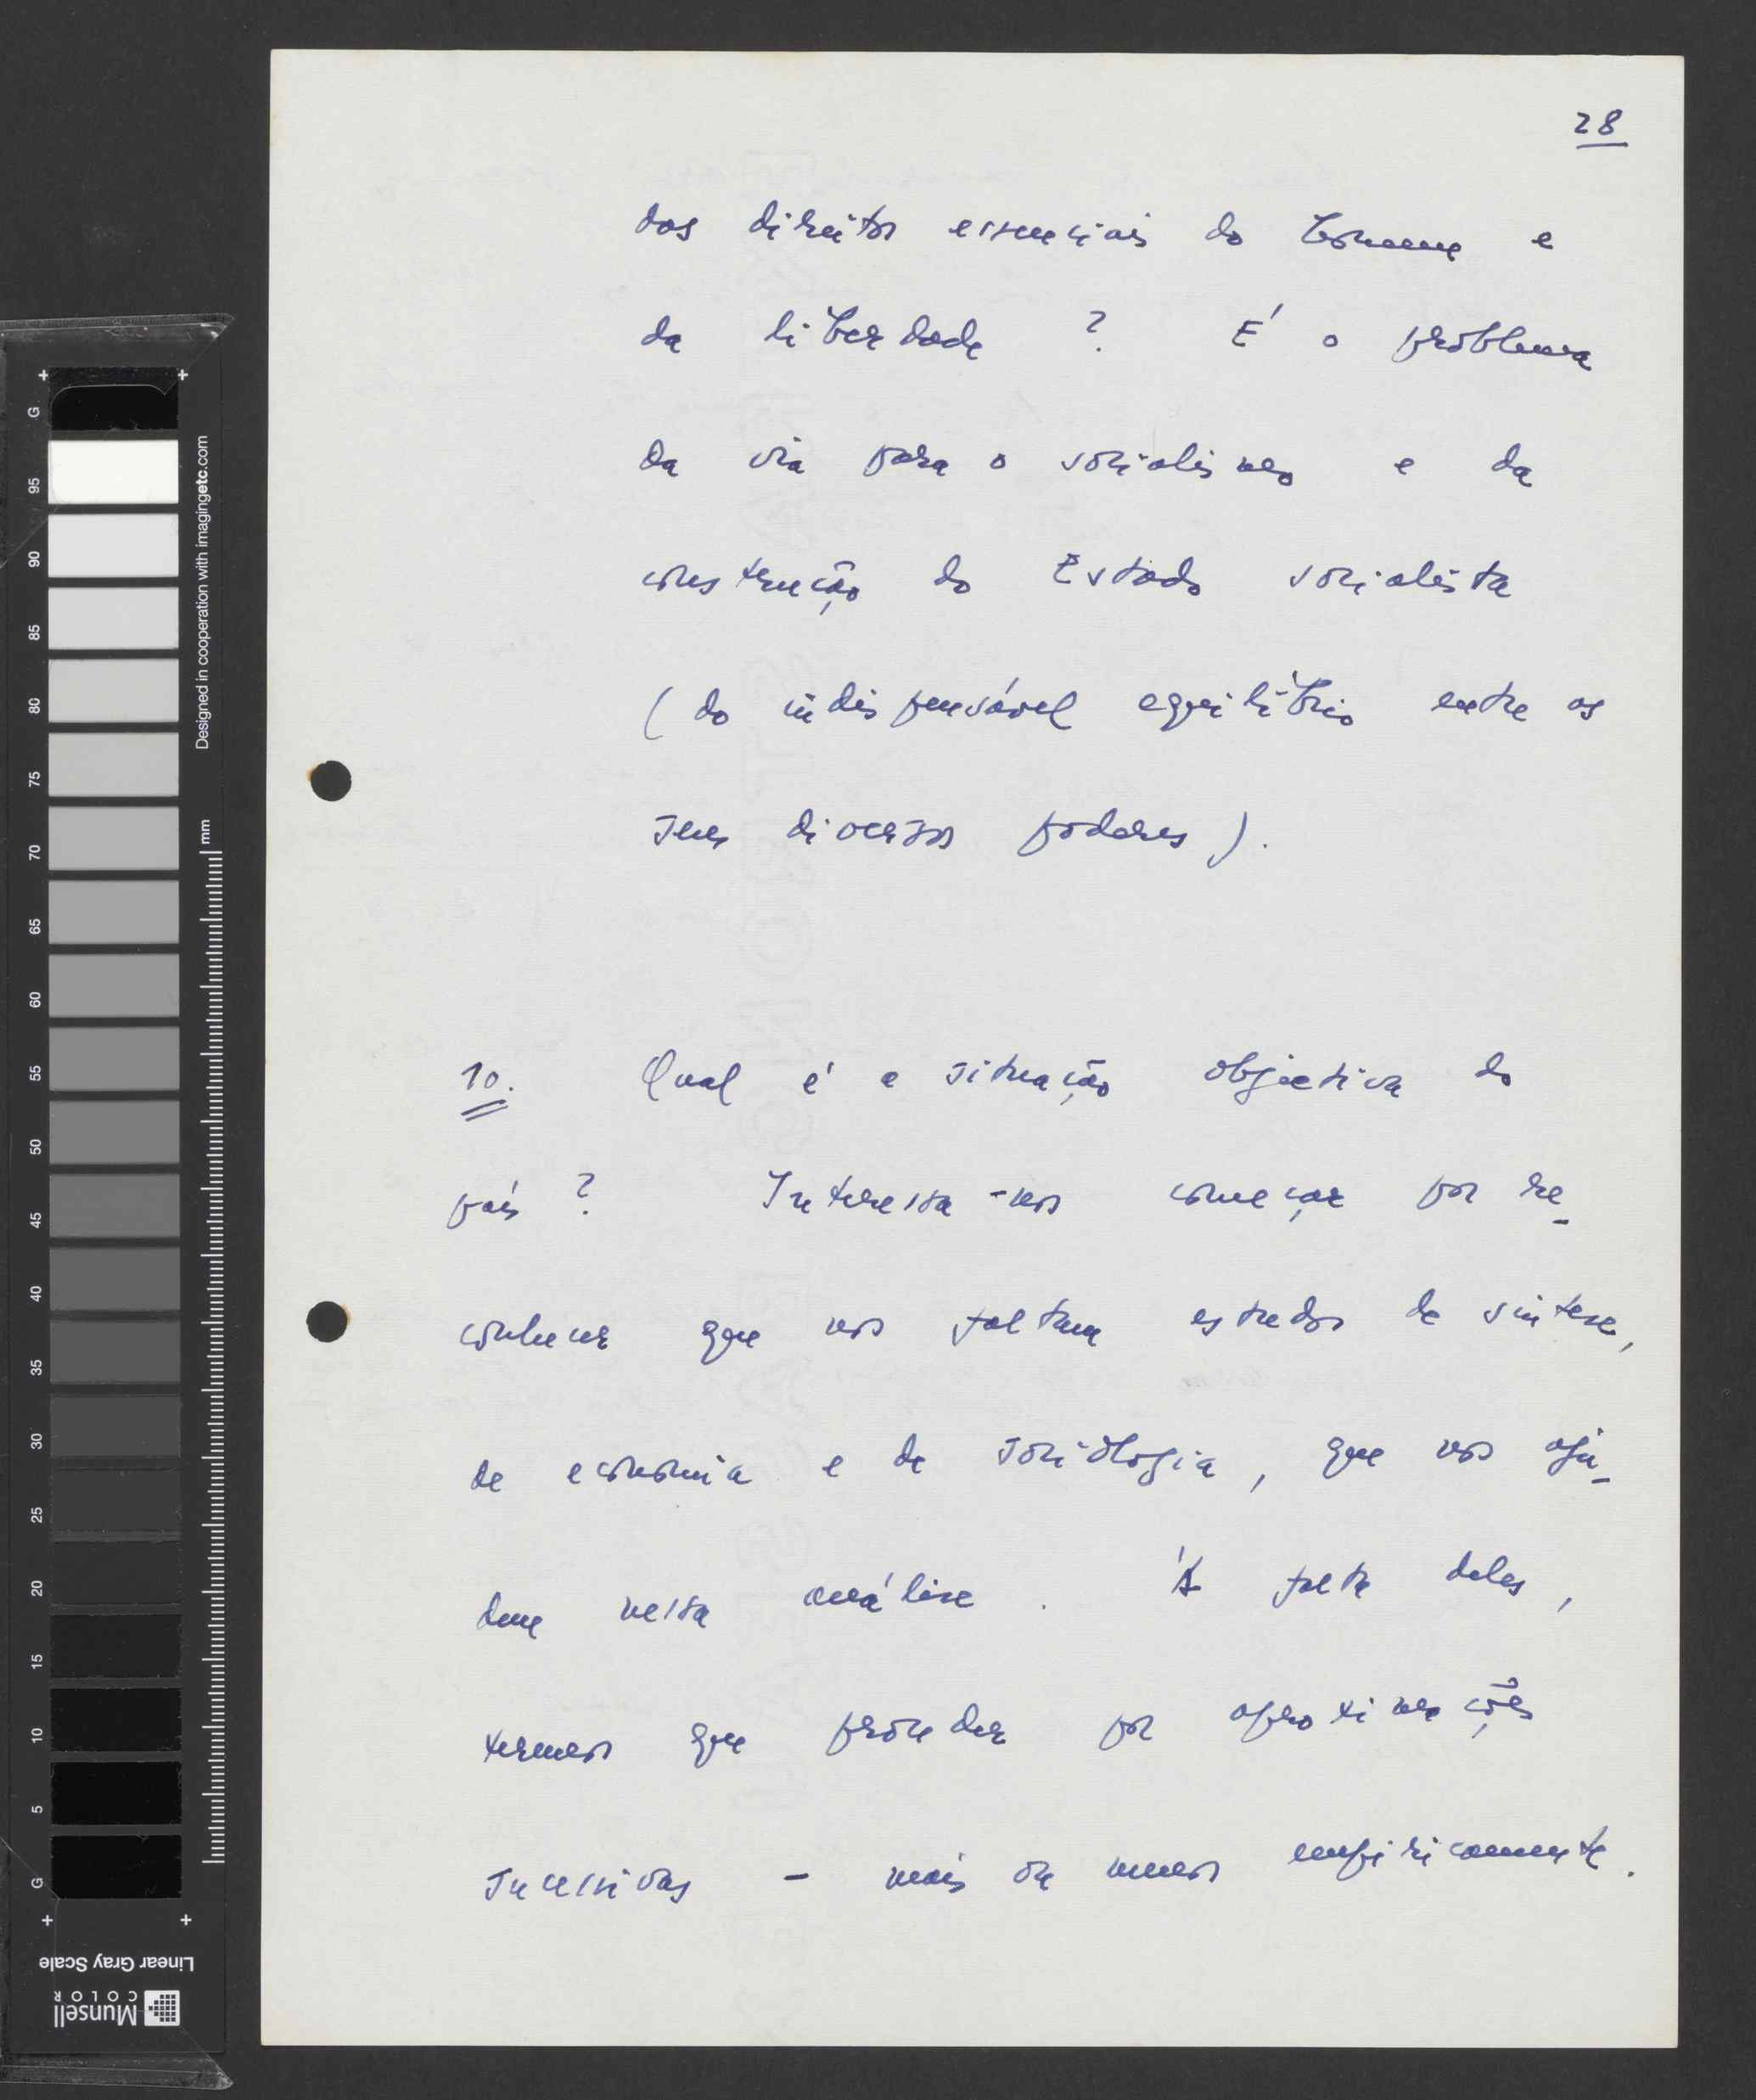 28
dos direitos essenciais do homem e
da liberdade ? É o problema
da via para o socialismo e da
construção do Estado socialista
( do indispensável equilíbrio entre os
seus diversos poderes ).
10. Qual é a situação objectiva do
país ? Interessa-nos começar por re-
conhecer que nos faltam estudos de síntese,
de economia e de sociologia, que nos aju-
dem nessa análise. À falta deles,
temos que proceder por aproximações
sucessivas - mais ou menos empiricamente.
G
95
90
85
80
75
70
65
60
55
50
45
40
35
30
25
20
15
10
5
G
Designed in cooperation with imagingetc.com
mm
Linear Gray Scale
Munsell
COLOR